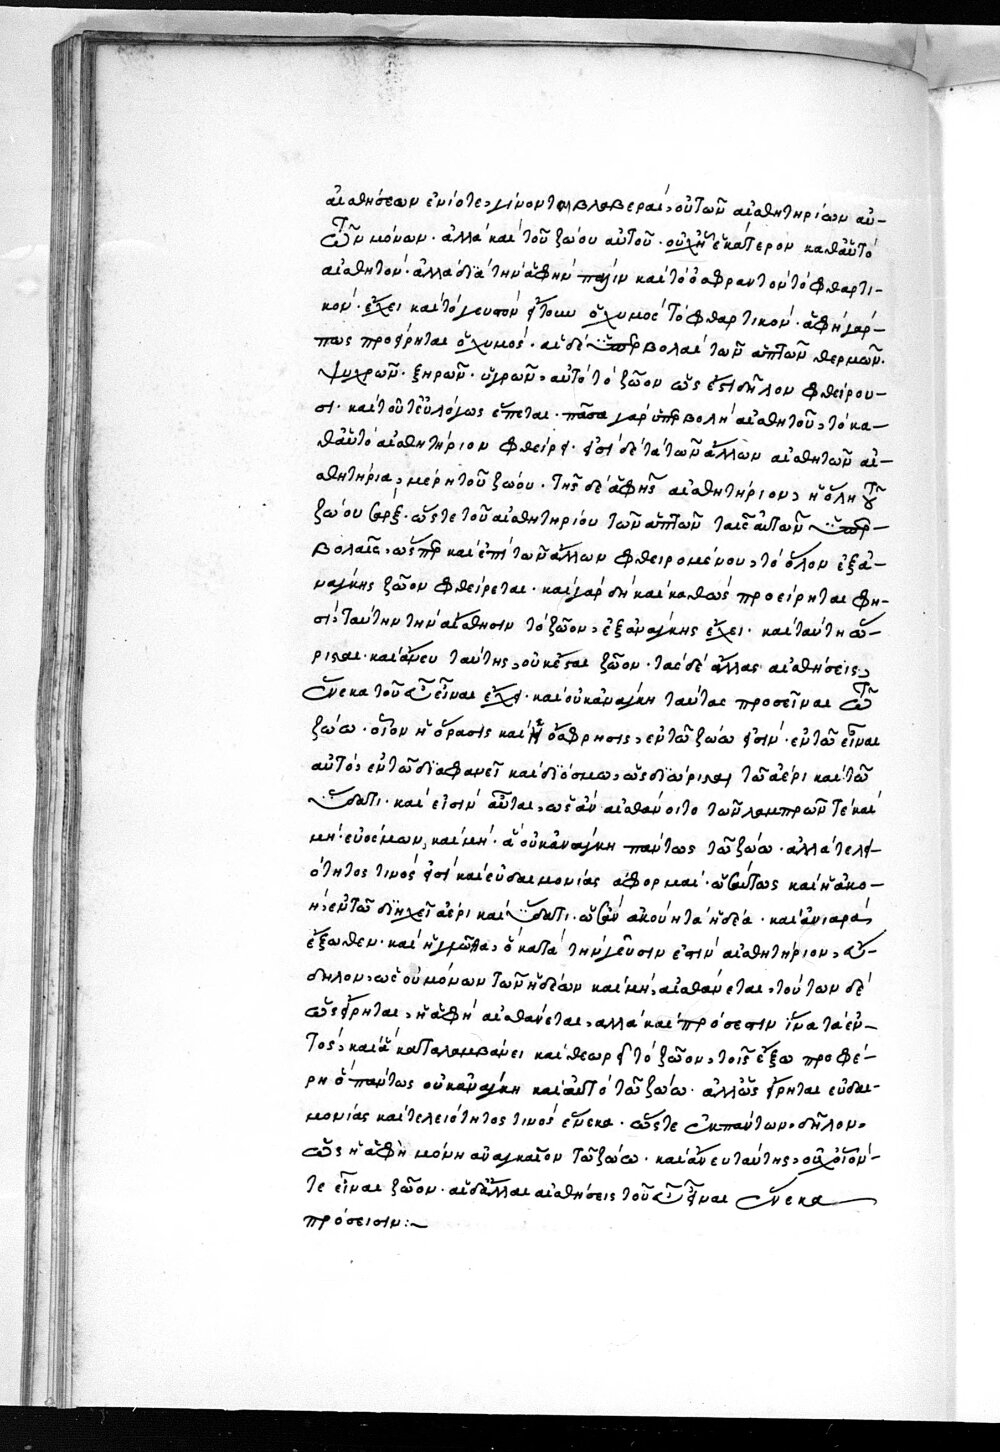 αἰσθήσεων ἐνίοτε, γίνονται βλαβεραί, οὐ τῶν αἰσθητηρίων αὐ-
τῶν μόνων· ἀλλὰ καὶ τοῦ ζώου αὐτοῦ· οὐχ ᾗ ἑκάτερον καθ' αὑτὸ
αἰσθητόν· ἀλλὰ διὰ τὴν ἁφήν· πάλιν καὶ τὸ ὀσφραντὸν τὸ φθαρτι-
κὸν· ἔχει καὶ τὸ γευστὸν ἤτοι ὁ χυμὸς τὸ φθαρτικόν· ἁφὴ γάρ
πως προείρηται ὁ χυμός· αἱ δὲ ὑπερβολαὶ τῶν ἁπτῶν θερμῶν·
ψυχρῶν· ξηρῶν· ὑγρῶν, αὐτὸ τὸ ζῶον ὡς ἔστι δῆλον φθείρου-
σι· καὶ τοῦτ' εὐλόγως ἕπεται· πᾶσα γὰρ ὑπερβολὴ αἰσθητοῦ, τὸ κα-
θ' αὑτὸ αἰσθητήριον φθείρει· εἰσὶ δὲ τὰ τῶν ἄλλων αἰσθητῶν αἰ-
σθητήρια, μέρη τοῦ ζώου· τῆς δὲ ἁφῆς αἰσθητήριον, ἡ ὅλη τοῦ
ζώου σάρξ· ὥστε τοῦ αἰσθητηρίου τῶν ἁπτῶν ταῖς αὐτῶν ὑπερ-
βολαῖς, ὥσπερ καὶ ἐπὶ τῶν ἄλλων φθειρομένου, τὸ ὅλον ἐξ ἀ-
νάγκης ζῶον φθείρεται· καὶ γὰρ δὴ καὶ καθὼς προείρηται φη-
σί, ταύτην τὴν αἴσθησιν τὸ ζῶον, ἐξ ἀνάγκης ἔχει· καὶ ταύτῃ ὥ-
ρισται· καὶ ἄνευ ταύτης, οὐκ ἔσται ζῶον· τὰς δὲ ἄλλας αἰσθήσεις,
ἕνεκα τοῦ εὖ εἶναι ἔχει· καὶ οὐκ ἀνάγκη ταύτας προσεῖναι τῷ
ζώῳ· οἷον ἡ ὅρασις καὶ ἡ ὄσφρησις, ἐν τῷ ζώῳ εἰσίν· ἐν τῷ εἶναι
αὐτὸ, ἐν τῷ διαφανεῖ καὶ διόσμῳ, ὡς διώρισται τῷ ἀέρι καὶ τῷ
ὕδατι· καὶ εἰσὶν αὗται, ὡς ἂν αἰσθάνοιτο τῶν λαμπρῶν τε καὶ
μή· εὐόσμων, καὶ μή· ἃ οὐκ ἀνάγκη πάντως τῷ ζώῳ· ἀλλὰ τελει-
ότητος τινός εἰσι καὶ εὐδαιμονίας ἀφορμαί· ὡσαύτως καὶ ἡ ἀκο-
ή, ἐν τῷ διηχεῖ ἀέρι καὶ ὕδατι· ὡς ἂν ἀκούῃ τὰ ἡδέα· καὶ ἀνιαρὰ,
ἔξωθεν· καὶ ἡ γλῶττα, ὃ κατὰ τὴν γεῦσιν ἐστὶν αἰσθητήριον, εὔ-
δηλον, ὡς οὐ μόνων τῶν ἡδέων καὶ μή, αἰσθάνεται, τούτων δὲ
ὡς εἴρηται, ἡ ἁφὴ αἰσθάνεται, ἀλλὰ καὶ πρόσεστιν ἵνα τὰ ἐν-
τὸς, καὶ ἃ καταλαμβάνει καὶ θεωρεῖ τὸ ζῶον, τοῖς ἔξω προφέ-
ρῃ ὃ πάντως οὐκ ἀνάγκη καὶ αὐτὸ τῷ ζώῳ· ἀλλ' ὡς εἴρηται εὐδαι-
μονίας καὶ τελειότητος τινὸς ἕνεκα· ὥστε ἐκ πάντων, δῆλον,
ὡς ἡ ἁφὴ μόνη ἀναγκαῖον τῷ ζώῳ· καὶ ἄνευ ταύτης, οὐχ οἷόν-
τε εἶναι ζῶον· αἱ δ' ἄλλαι αἰσθήσεις τοῦ εὖ εἶναι ἕνεκα
πρόσεισιν:~